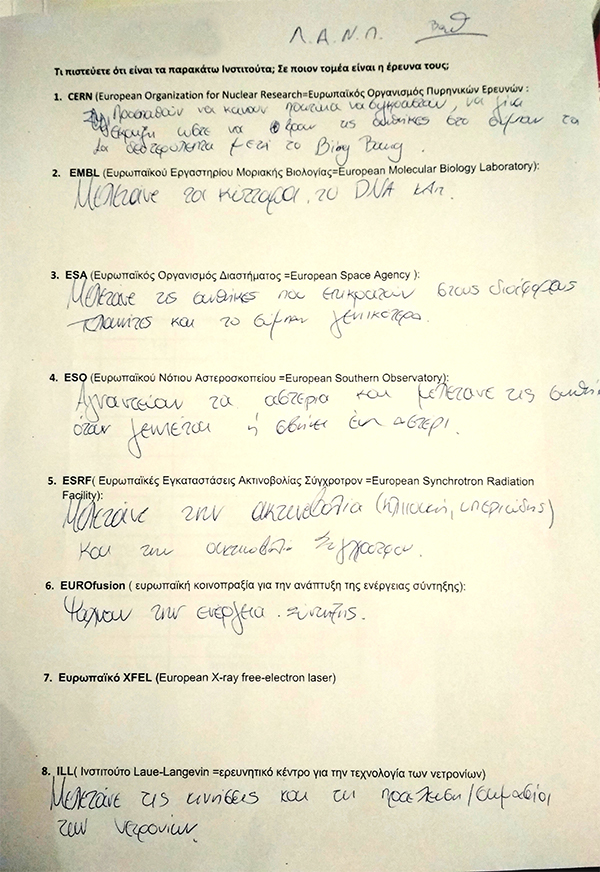 Λ.Α.Ν.Π. Βαθ
Τι πιστεύετε ότι είναι τα παρακάτω Ινστιτούτα; Σε ποιον τομέα είναι η έρευνα τους;
1. CERN (European Organization for Nuclear Research=Ευρωπαϊκός Οργανισμός Πυρηνικών Ερευνών :
Προσπαθούν να κάνουν πρωτόνια να συγκρουστούν, να γίνει
έκρηξη ώστε να βρουν τις συνθήκες στο σύμπαν τα
δευτερόλεπτα μετά το Bing Bang.
2. EMBL (Ευρωπαϊκού Εργαστηρίου Μοριακής Βιολογίας=European Molecular Biology Laboratory):
Μελετάνε τα κύτταρα, το DNA κλπ.
3. ESA (Ευρωπαϊκός Οργανισμός Διαστήματος =European Space Agency ):
Μελετάνε τις συνθήκες που επικρατούν στους διάφορους
πλανήτες και το σύμπαν γενικότερα.
4. ESO (Ευρωπαϊκού Νότιου Αστεροσκοπείου =European Southern Observatory):
τα αστέρια και μελετάνε τις
όταν γεννιέται ή σβήνει ένα αστέρι.
5. ESRF( Ευρωπαϊκές Εγκαταστάσεις Ακτινοβολίας Σύγχροτρον =European Synchrotron Radiation
Facility):
Μελετάνε την ακτινοβολία (ηλιακή, υπεριώδης)
και την ακτινοβολία
6. EUROfusion ( ευρωπαϊκή κοινοπραξία για την ανάπτυξη της ενέργειας σύντηξης):
Ψάχνουν την ενέργεια σύντηξης.
7. Ευρωπαϊκό XFEL (European X-ray free-electron laser)
8. ILL( Ινστιτούτο Laue-Langevin =ερευνητικό κέντρο για την τεχνολογία των νετρονίων)
Μελετάνε τις κινήσεις και τη προέλευση/σημασία
των νετρονίων.